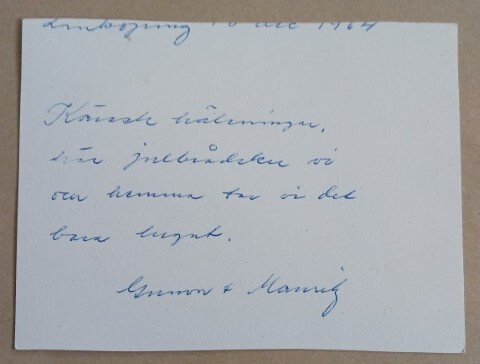 Linköping 10 dec 1964
Kärаste hälsningar.
här julbrådskar vi
men hemma tar vi det
bara lugnt.
Gunvor + Mauritz